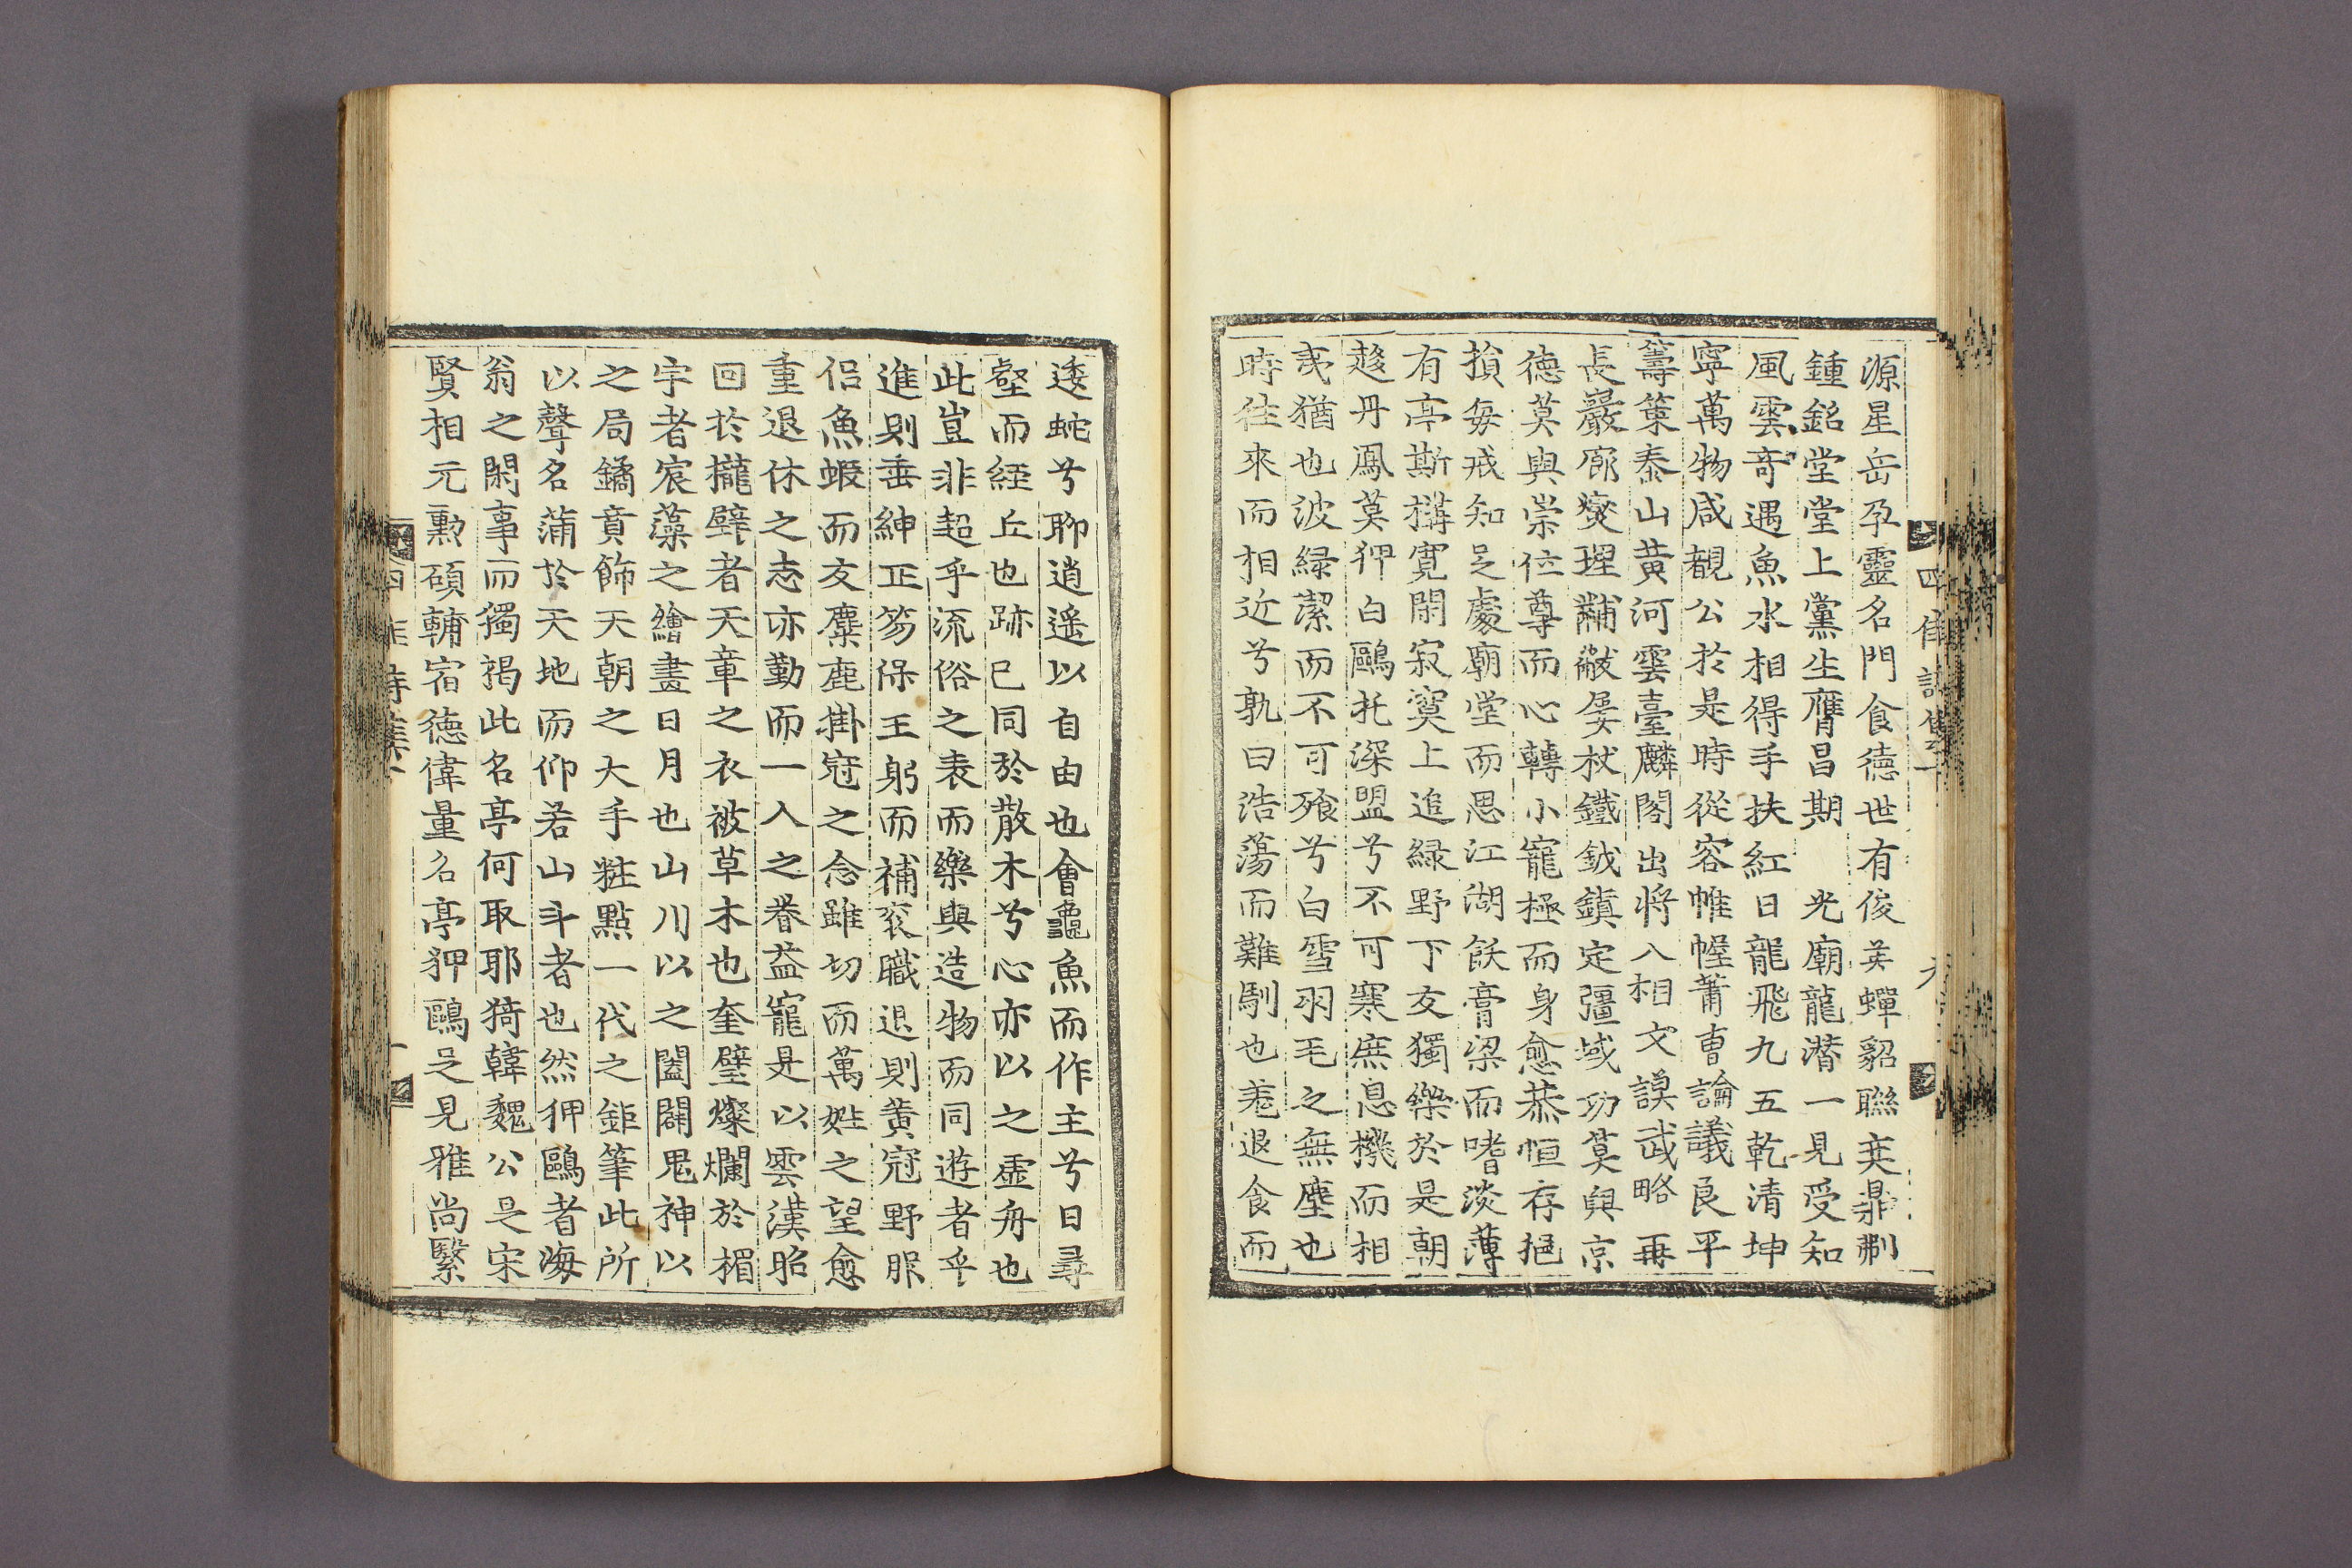 源星岳孕靈名門食德世有俊英蟬貂聯奕鼎鼐
鍾銘堂堂上黨生膺昌期 光廟龍潛一見受知
風雲奇遇魚水相得手扶紅日龍飛九五乾清坤
寧萬物咸覩公於是時從容帷幄蕭曺論議良平
籌策泰山黃河雲臺麟閣出將八相文謨武略 再
長巖廊燮理黼黻屢杖鐵鉞鎮定彊域功莫與京
德莫與崇位尊而心轉小寵極而身愈恭恒存挹
損每戒知足處廟堂而思江湖飫膏粱而嗜淡薄
有亭斯構寬閑寂寞上追綠野下友獨樂於是朝
趍丹鳳莫狎白鷗托深盟兮不可寒庶息機而相
夷猶也波綠潔而不可飱兮白雪羽毛之無塵也
時往來而相近兮孰曰浩蕩而難馴也羌退食而
四佳詩集
逶蛇兮聊逍遥以自由也會龜魚而作主兮日尋
壑而經丘也跡已同於散木兮心亦以之虛舟也
此豈非超乎流俗之表而樂與造物而同遊者乎
進則垂紳正笏保王躬而補衮職退則黃冠野服
侣魚蝦而友麋鹿掛冠之念雖切而萬姓之望愈
重退休之志亦勤而一人之眷益寵是以雲漢昭
回於櫳壁者天章之衣被草木也奎璧燦爛於楣
宇者宸藻之繪畫日月也山川以之闔闢鬼神以
之局鐍賁飾天朝之大手粧點一代之鉅筆此所
以聲名蒲於天地而仰若山斗者也然狎鷗者海
翁之閑事而獨揭此名亭何取耶猗韓魏公是宋
賢相元勳碩輔宿德偉量名亭狎鷗足見雅尚繄